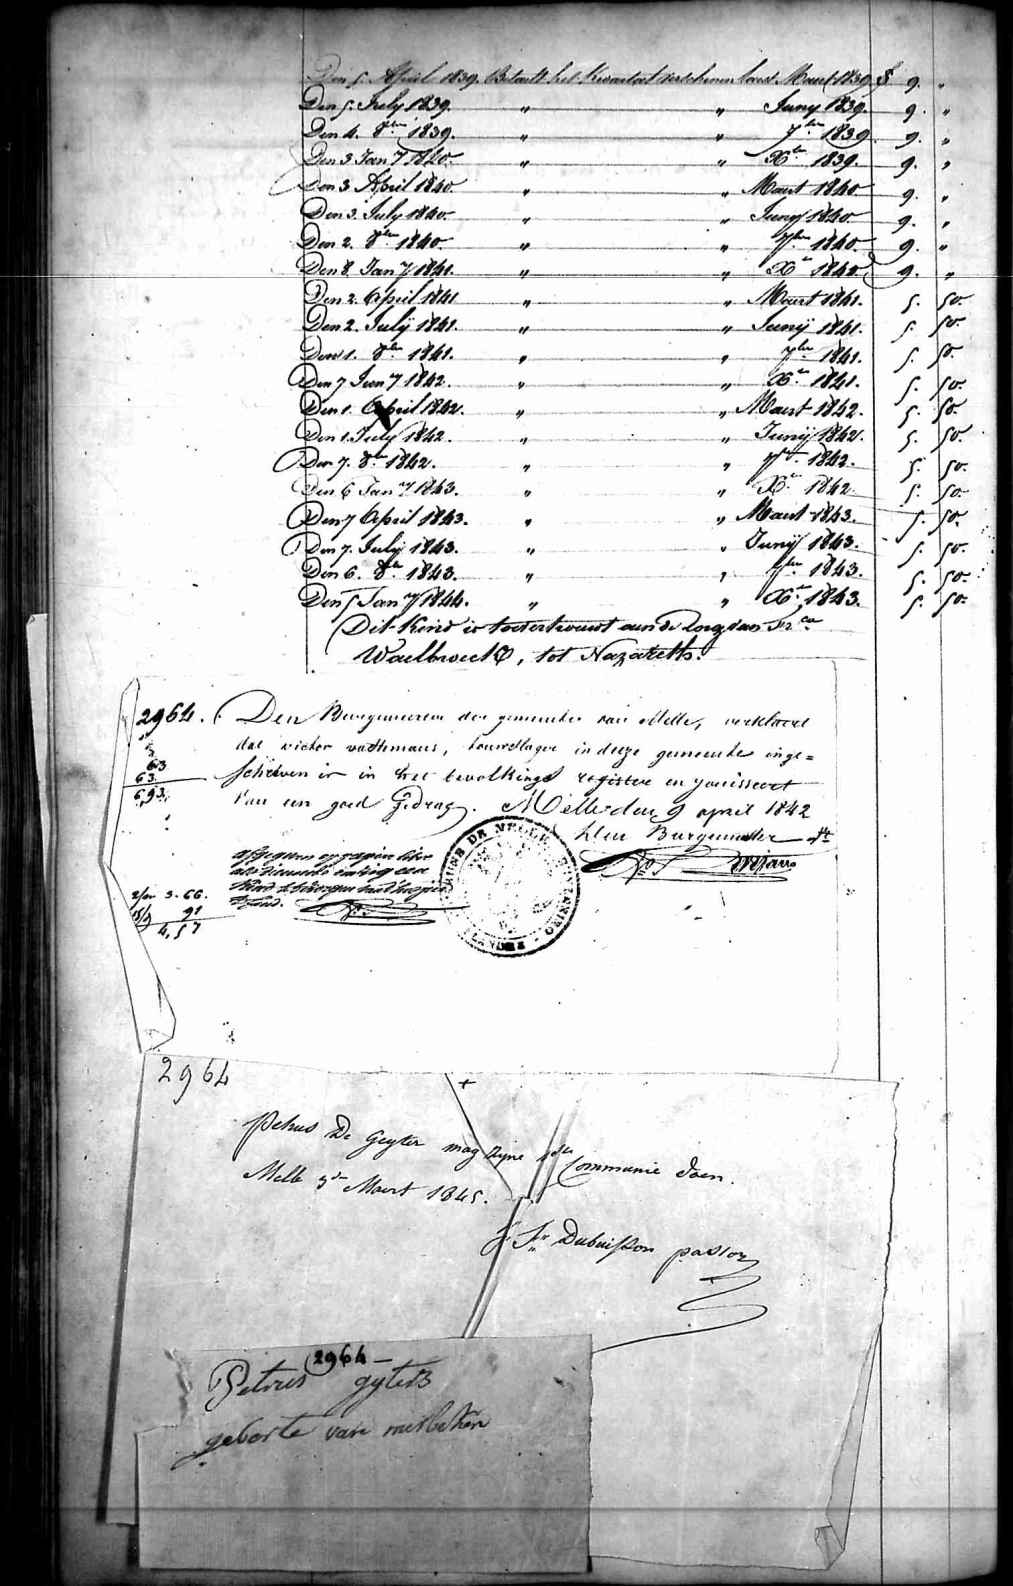 Den 5. April 1839. Betaelt het kwartael verschenen laest Maert 1839 f 9. "
Den 5. July 1839. " " Juny 1839. 9. "
Den 4. 8ber 1839. " " 7ber 1839 9. "
Den 3 Jany 1840. " " Xber 1839. 9. "
Den 3 April 1840. " " Maert 1840 9. "
Den 3. July 1840. " " Juny 1840. 9. "
Den 2. 8ber 1840. " " 7ber 1840. 9. "
Den 8. Jany 1841. " " Xber 1840. 9. "
Den 2. April 1841 " " Maert 1841. 5. 50.
Den 2. Julij 1841. " " Junij 1841. 5. 50.
Den 1. 8ber 1841. " " 7ber 1841. 5. 50.
Den 7 Jany 1842. " " Xber 1841. 5. 50.
Den 1. April 1842. " " Maert 1842. 5. 50.
Den 1. July 1842. " " Junij 1842. 5. 50.
Den 7. 8ber 1842. " " 7ber 1842. 5. 50.
Den 6 Jany 1843. " " Xber 1842 5. 50.
Den 7 April 1843. " " Maert 1843. 5. 50.
Den 7. Julij 1843. " " Junij 1843. 5. 50.
Den 6. 8ber 1843. " " 7ber 1843. 5. 50.
Den 5 Jany 1844. " " Xber 1843. 5. 50.
Dit kind is toevertrouwt aen de zorg van Frca
Waelbroeck, tot Nazareth.
2964. Den Burgemeester der gemeente van Melle, verklaert
dat victor vaethmans, houwdlager in deeze gemeente inge=
63
63
6,93.
schreven is in het bevolkings register en jouisseert
van een goed gedrag. Melle den 9 april 1842
Den Burgemeester
afgegeven op papier
kind
2/m 3-66.
91
4,57
COMMUNE DE MELLE
FLANDRE
2964
Petrus De Geyter mag zyne 1ste Communie doen.
Melle 3de Maert 1845.
Dubuisson pastor
2964
Petrus gyters
geborte van merlbeken